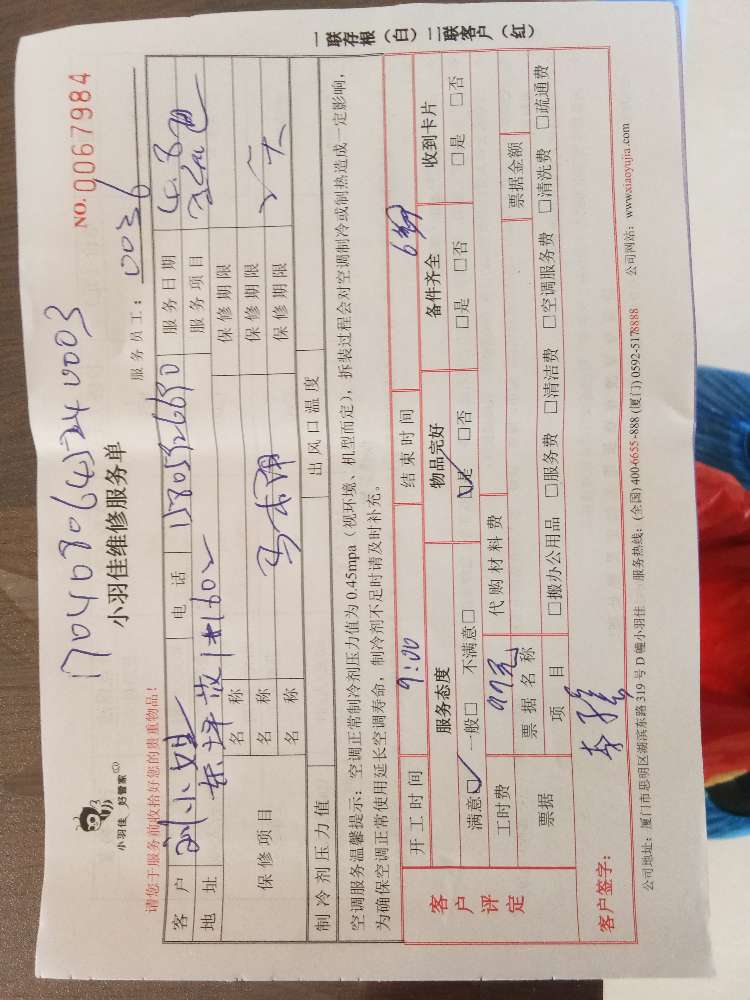 一联存根（白）二联客户（红）
NO. 0067984
小羽佳 好管家
小羽佳维修服务单
服务员工： 0036
请您于服务前收拾好您的贵重物品！
客户 刘小姐 电话 服务日期
地址 1#1602 服务项目
保修项目
名称 保修期限
名称 保修期限
名称 保修期限
制冷剂压力值 出风口温度
空调服务温馨提示：空调正常制冷剂压力值为 0.45mpa（视环境、机型而定），拆装过程会对空调制冷或制热造成一定影响，
为确保空调正常使用延长空调寿命，制冷剂不足时请及时补充。
客户评定
开工时间 9:00 结束时间
服务态度 物品完好 备件齐全 收到卡片
满意□ 一般□ 不满意□ □是 □否 □是 □否 □是 □否
工时费 97元 代购材料费
票据 票据名称 票据金额
项目 □搬办公用品 □服务费 □清洁费 □空调服务费 □清洗费 □疏通费
客户签字：
公司地址：厦门市思明区湖滨东路 319 号 D 幢小羽佳 服务热线：(全国) 400-6655-888 (厦门) 0592-5178888 公司网站：www.xiaoyujia.com